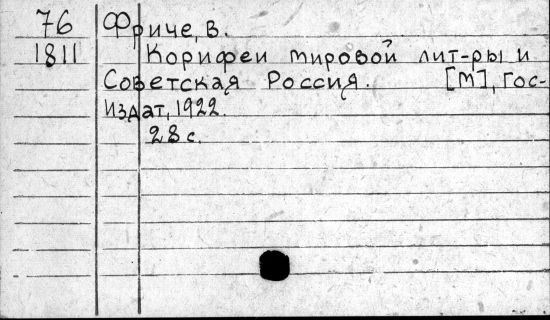 76 Фриче, В.
1811 Корифеи мировой лит-ры и
Советская Россия. [М], Гос-
издат, 1922.
28 с.